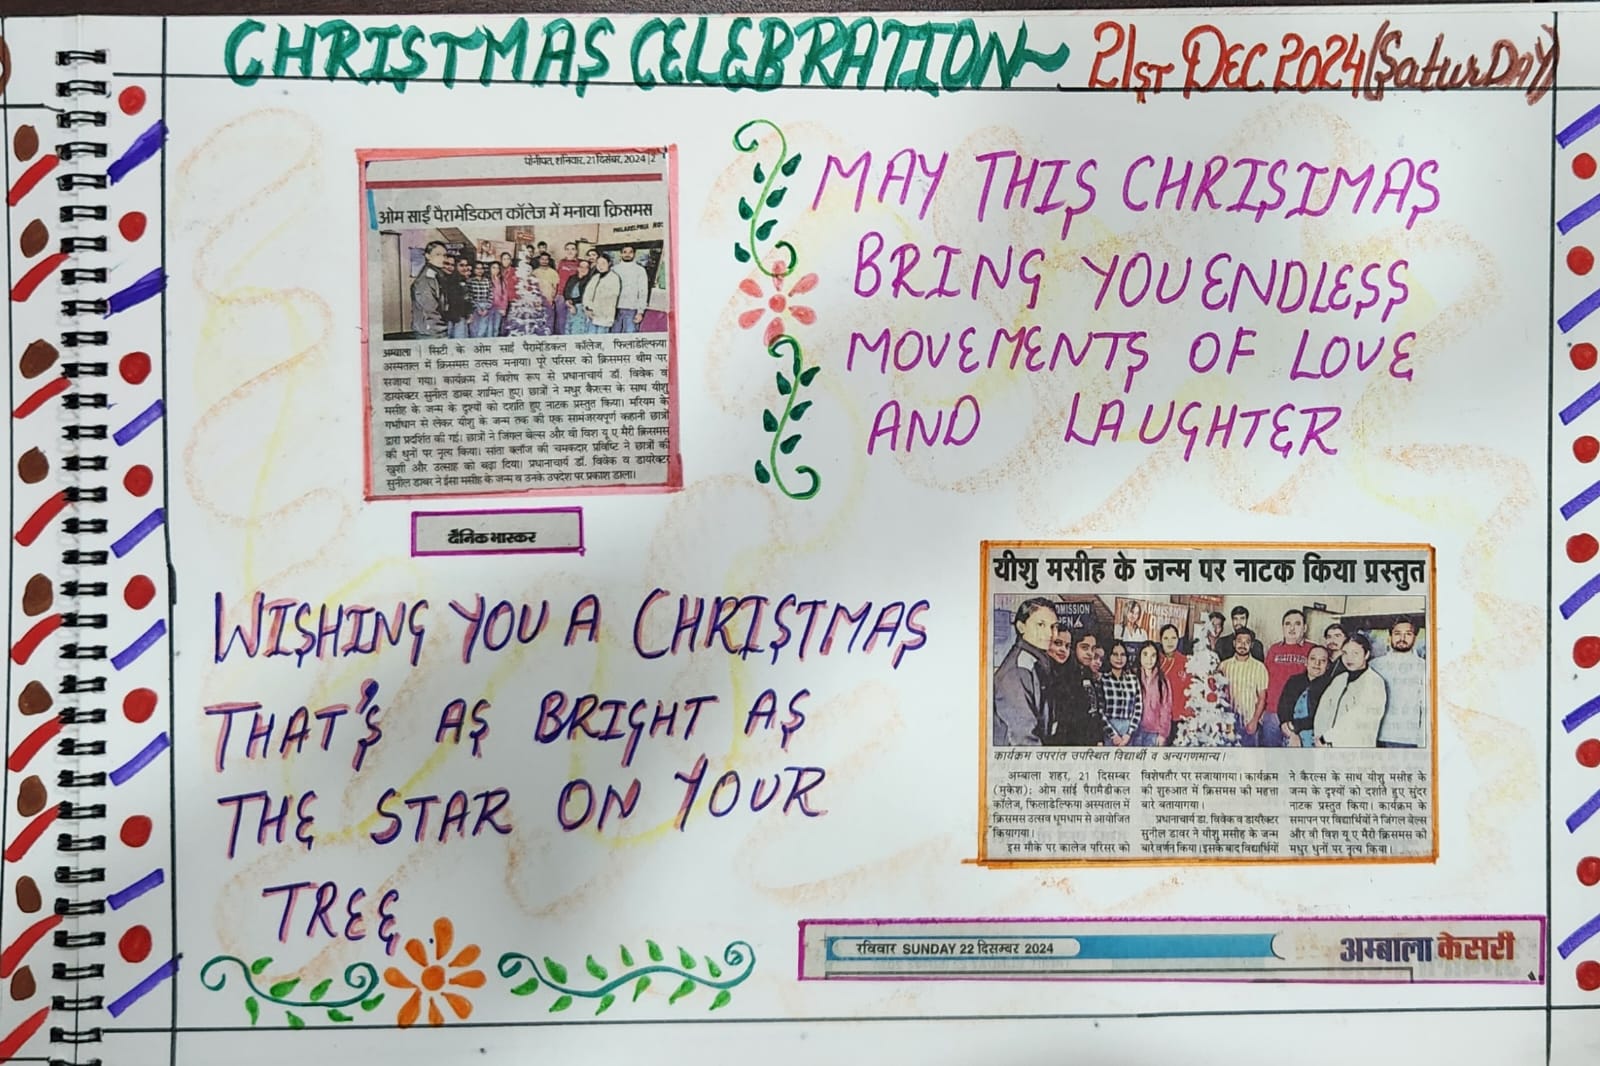 CHRISTMAS CELEBRATION~ 21ST DEC 2024 (SaturDAY)
पानीपत, शनिवार, 21 दिसंबर, 2024 | 2
ओम साईं पैरामेडिकल कॉलेज में मनाया क्रिसमस
PHILADELPHIA
अम्बाला | सिटी के ओम साईं पैरामेडिकल कॉलेज, फिलाडेल्फिया
अस्पताल में क्रिसमस उत्सव मनाया। पूरे परिसर को क्रिसमस थीम पर
सजाया गया। कार्यक्रम में विशेष रूप से प्रधानाचार्य डॉ. विवेक व
डायरेक्टर सुनील डाबर शामिल हुए। छात्रों ने मधुर कैरल्स के साथ यीशु
मसीह के जन्म के दृश्यों को दर्शाते हुए नाटक प्रस्तुत किया। मरियम के
गर्भाधान से लेकर यीशु के जन्म तक की एक सामंजस्यपूर्ण कहानी छात्रों
द्वारा प्रदर्शित की गई। छात्रों ने जिंगल बेल्स और वी विश यू ए मैरी क्रिसमस
की धुनों पर नृत्य किया। सांता क्लॉज की चमकदार प्रविष्टि ने छात्रों की
खुशी और उत्साह को बढ़ा दिया। प्रधानाचार्य डॉ. विवेक व डायरेक्टर
सुनील डाबर ने ईसा मसीह के जन्म व उनके उपदेश पर प्रकाश डाला।
दैनिक भास्कर
MAY THIS CHRISTMAS
BRING YOU ENDLESS
MOVEMENTS OF LOVE
AND LAUGHTER
WISHING YOU A CHRISTMAS
THAT'S AS BRIGHT AS
THE STAR ON YOUR
TREE.
यीशु मसीह के जन्म पर नाटक किया प्रस्तुत
कार्यक्रम उपरांत उपस्थित विद्यार्थी व अन्यगणमान्य।
अम्बाला शहर, 21 दिसम्बर
(मुकेश): ओम सांई पैरामैडीकल
कॉलेज, फिलाडेल्फिया अस्पताल में
क्रिसमस उत्सव धूमधाम से आयोजित
किया गया।
इस मौके पर कालेज परिसर को
विशेषतौर पर सजाया गया। कार्यक्रम
की शुरुआत में क्रिसमस की महत्ता
बारे बताया गया।
प्रधानाचार्य डा. विवेक व डायरैक्टर
सुनील डावर ने यीशु मसीह के जन्म
बारे वर्णन किया। इसके बाद विद्यार्थियों
ने कैरल्स के साथ यीशु मसीह के
जन्म के दृश्यों को दर्शाते हुए सुंदर
नाटक प्रस्तुत किया। कार्यक्रम के
समापन पर विद्यार्थियों ने जिंगल बेल्स
और वी विश यू ए मैरी क्रिसमस की
मधुर धुनों पर नृत्य किया।
रविवार SUNDAY 22 दिसम्बर 2024
अम्बाला केसरी